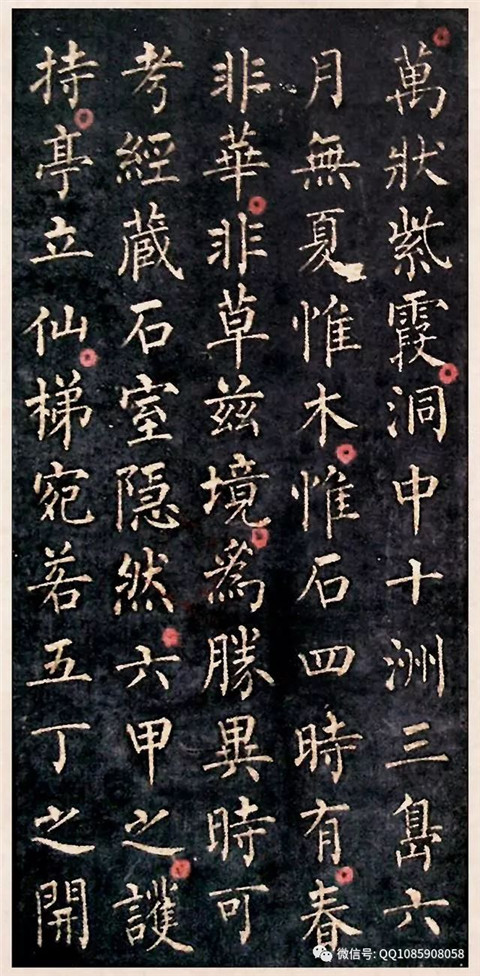 萬狀紫霞洞中十洲三島六
月無夏惟木惟石四時有春
非華非草茲境爲勝異時可
考經蔵石室隐然六甲之護
持亭立仙梯宛若五丁之開
微信号: QQ1085908058